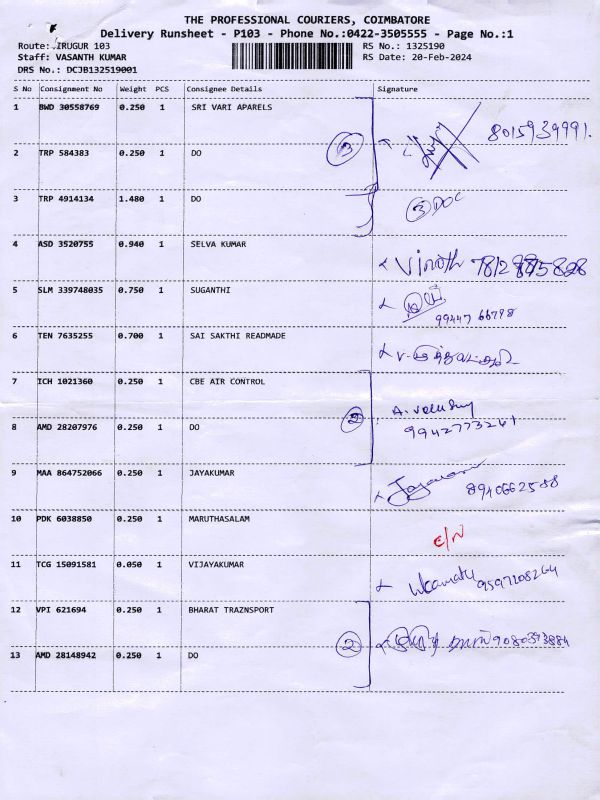 THE PROFESSIONAL COURIERS, COIMBATORE
Delivery Runsheet - P103 - Phone No.:0422-3505555 - Page No.:1
Route: IRUGUR 103
RS No.: 1325190
Staff: VASANTH KUMAR
RS Date: 20-Feb-2024
DRS No.: DCJB132519001
S No Consignment No Weight PCS Consignee Details Signature
1 BWD 30558769 0.250 1 SRI VARI APARELS 8015939991.
2 TRP 584383 0.250 1 DO 3
3 TRP 4914134 1.480 1 DO 3 DOC
4 ASD 3520755 0.940 1 SELVA KUMAR Vinoth
5 SLM 339748035 0.750 1 SUGANTHI 99447 66798
6 TEN 7635255 0.700 1 SAI SAKTHI READMADE
7 ICH 1021360 0.250 1 CBE AIR CONTROL
8 AMD 28207976 0.250 1 DO 2 9942773261
9 MAA 864752066 0.250 1 JAYAKUMAR 8940662588
10 PDK 6038850 0.250 1 MARUTHASALAM
11 TCG 15091581 0.050 1 VIJAYAKUMAR 9597208264
12 VPI 621694 0.250 1 BHARAT TRAZNSPORT 2 9080373884
13 AMD 28148942 0.250 1 DO